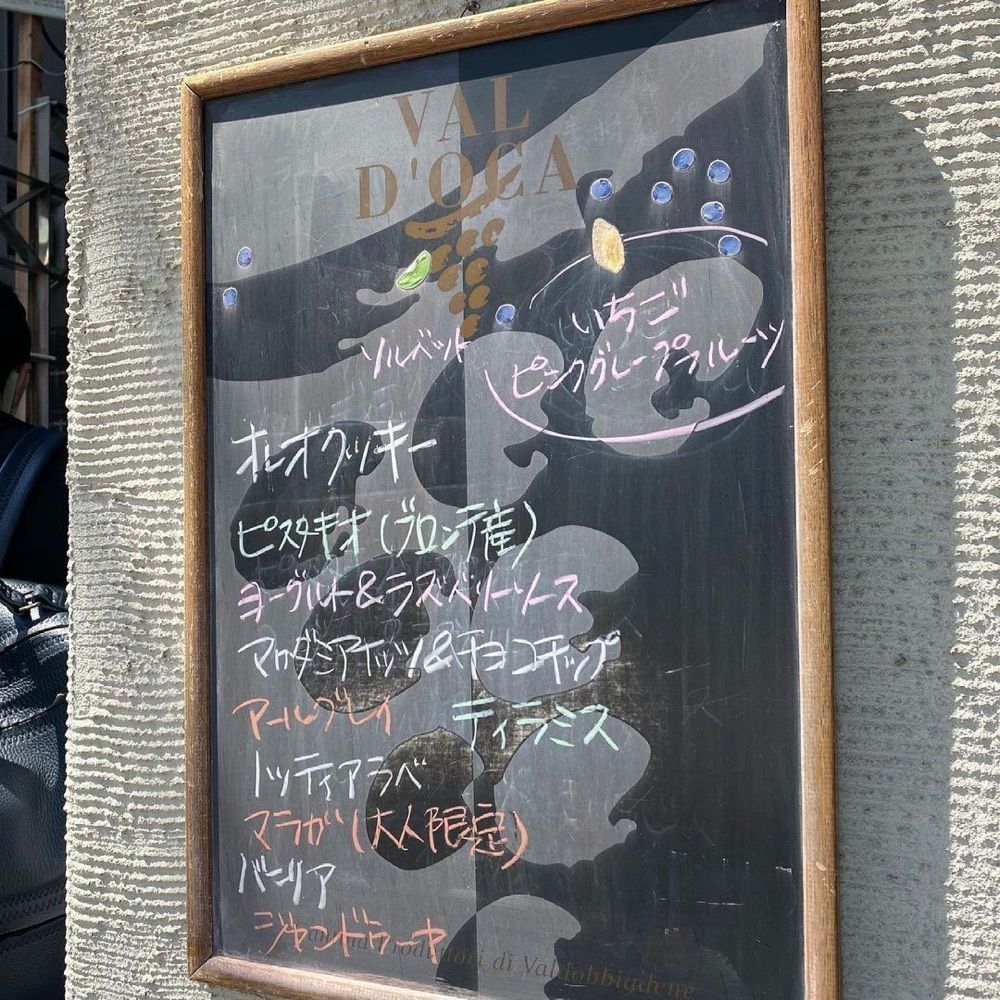 VAL
D'OCA
いちご
ソルベット
ピンクグレープフルーツ
オレオクッキー
ピスタキオ(ブロンテ産)
ヨーグルト&ラズベリーソース
マカダミアナッツ&チョコチップ
アールグレイ ティラミス
ノッティアラベ
マラガ(大人限定)
バニリア
ジャンドゥーヤ
Produttori di Valdobbiadene